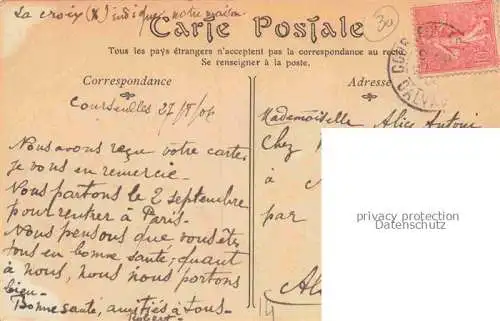 La croix (X) indique notre maison.
Carte Postale
30
Tous les pays étrangers n'acceptent pas la correspondance au recto
Se renseigner à la poste.
Correspondance
Adresse
Courseulles 27/8/06
Mademoiselle Alice Antoni
Chez
à
par
Nous avons reçu votre carte
je vous en remercie.
Nous partons le 2 septembre
pour rentrer à Paris.
Nous pensons que vous êtes
tous en bonne santé, quant
à nous, nous nous portons
bien.
Bonne santé, amitiés à tous.
Robert
14
privacy protection
Datenschutz